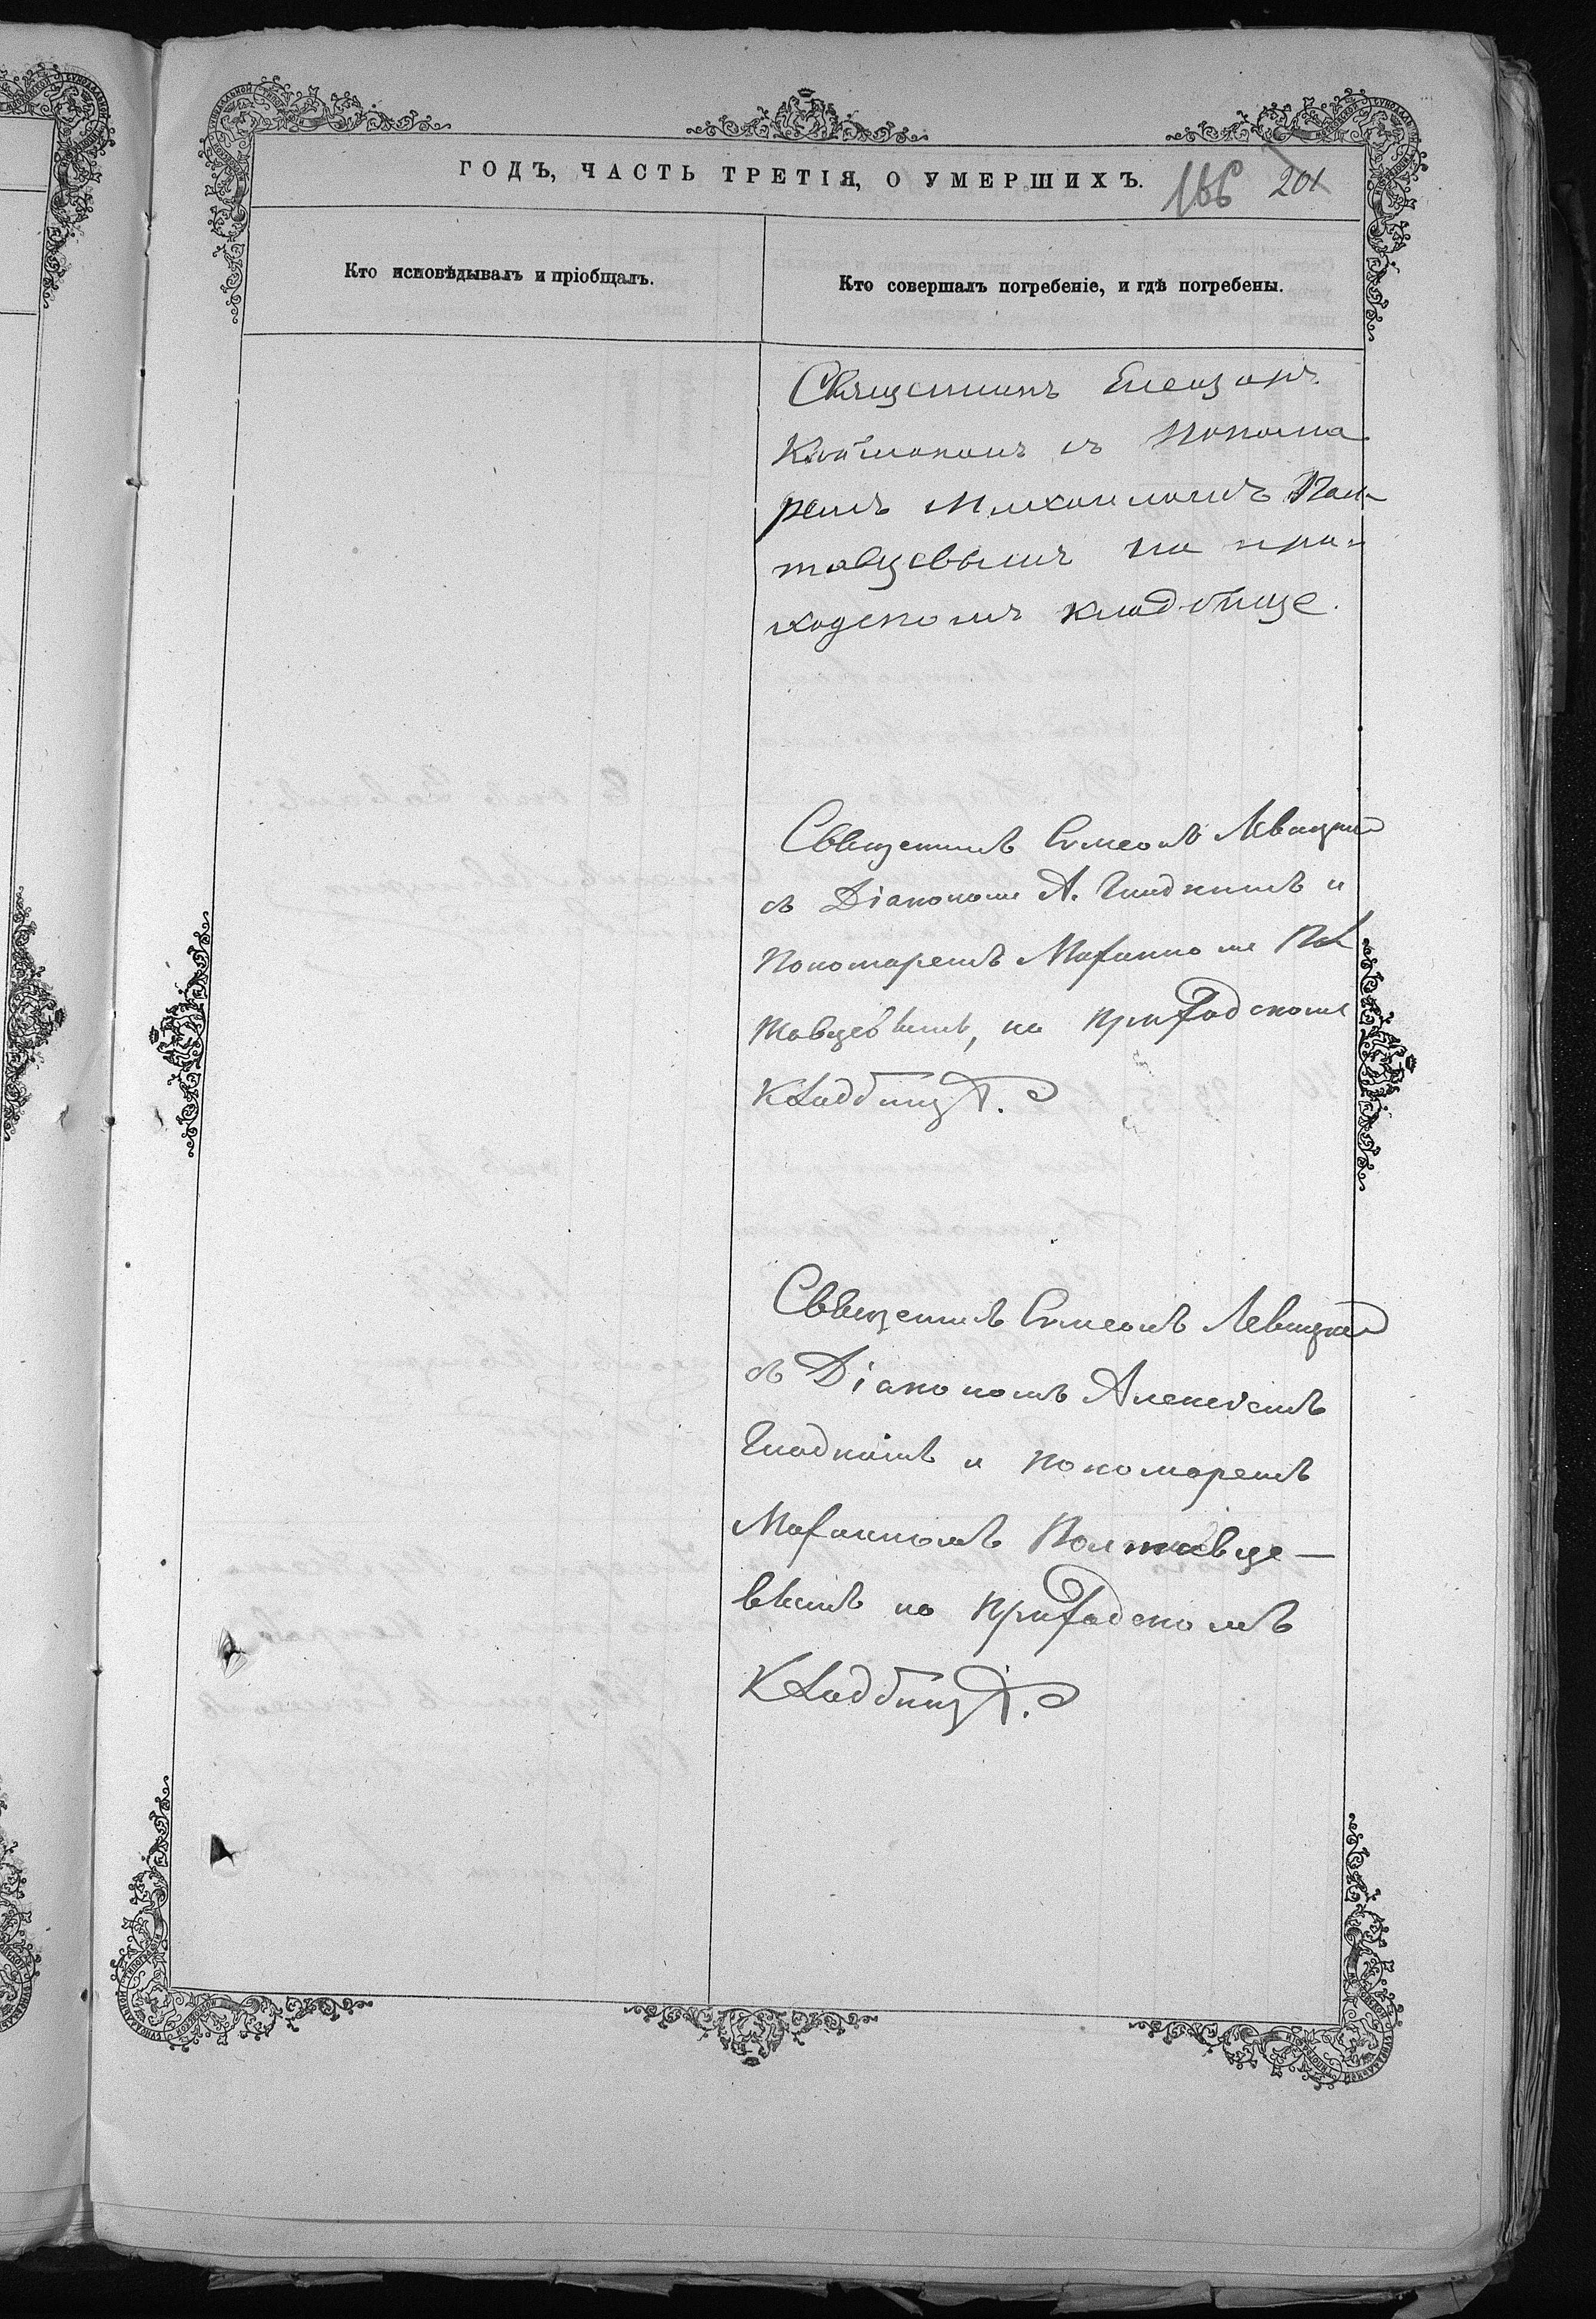 ГОДЪ, ЧАСТЬ ТРЕТІЯ, О УМЕРШИХЪ.
166 201
Кто исповѣдывалъ и пріобщалъ.
Кто совершалъ погребеніе, и гдѣ погребены.
Священникъ
съ Понома
ремъ Михаиломъ Пол-
тавцевымъ на при-
ходскомъ кладбище.
Священникъ Симеонъ Левицкій
съ Діакономъ А. Гладкимъ и
Пономаремъ Михаиломъ Пол
тавцевымъ, на приходскомъ
кладбищѣ.
Священникъ Симеонъ Левицкій
съ Діакономъ Алексіемъ
Гладкимъ и пономаремъ
Михаиломъ Полтавце-
вымъ на приходскомъ
кладбищѣ.